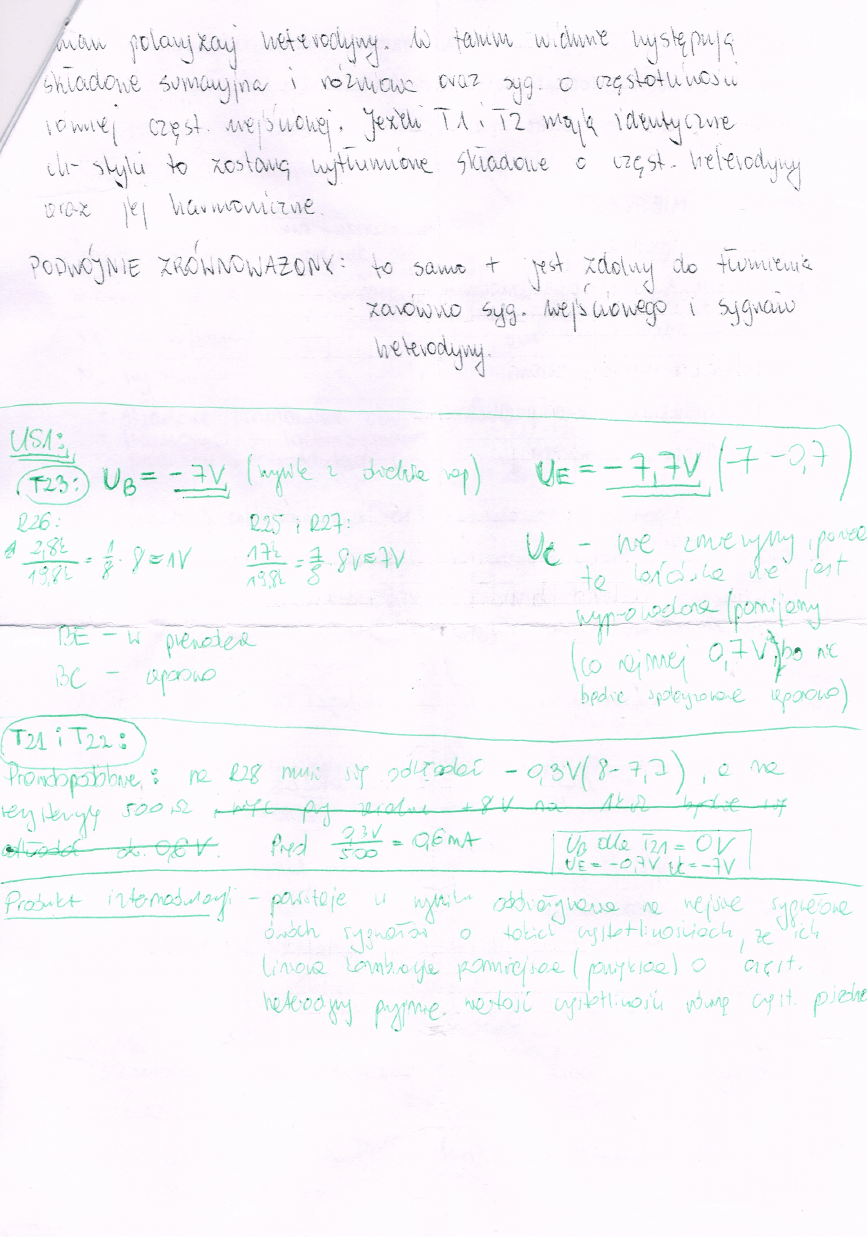 zmian polaryzacji heterodyny. W takim widmie występują
składowe sumacyjna i różnicowa oraz syg. o częstotliwości
równej częst. wejściowej. Jeżeli T1 i T2 mają identyczne
ch-styki to zostaną wytłumione składowe o częst. heterodyny
oraz jej harmoniczne.
PODWÓJNIE ZRÓWNOWAŻONY: to samo + jest zdolny do tłumienia
zarówno syg. wejściowego i sygnału
heterodyny.
US1:
T23: UB = - 7V (wynika z dzielnika nap) UE = - 7,7V (7 - 0,7)
R26: R25 i R27:
2,8k/19,8k = 1/8 · 8 = 1V 17k/19,8k = 7/8 · 8V = 7V
UC - nie zmierzymy, ponieważ
ta końcówka nie jest
wyprowadzona (pomijamy
BE - w przewodzie
(co najmniej 0,7V), bo nie
BC - zaporowo
będzie spolaryzowane zaporowo)
T21 i T22:
Prawdopodobnie: na R28 musi się odkładać - 0,3V (8 - 7,7), a na
rezystencję 500Ω
Prąd 0,3V/500 = 0,6mA
UB dla T21 = 0V
UE = -0,7V UC = -7V
Produkt intermodulacji - powstaje w wyniku oddziaływania na wejście sygnałowe
dwóch sygnałów o takich częstotliwościach, że ich
liniowa kombinacja pomniejszona (powiększona) o częst.
heterodyny przyjmie wartość częstotliwości równą częst.